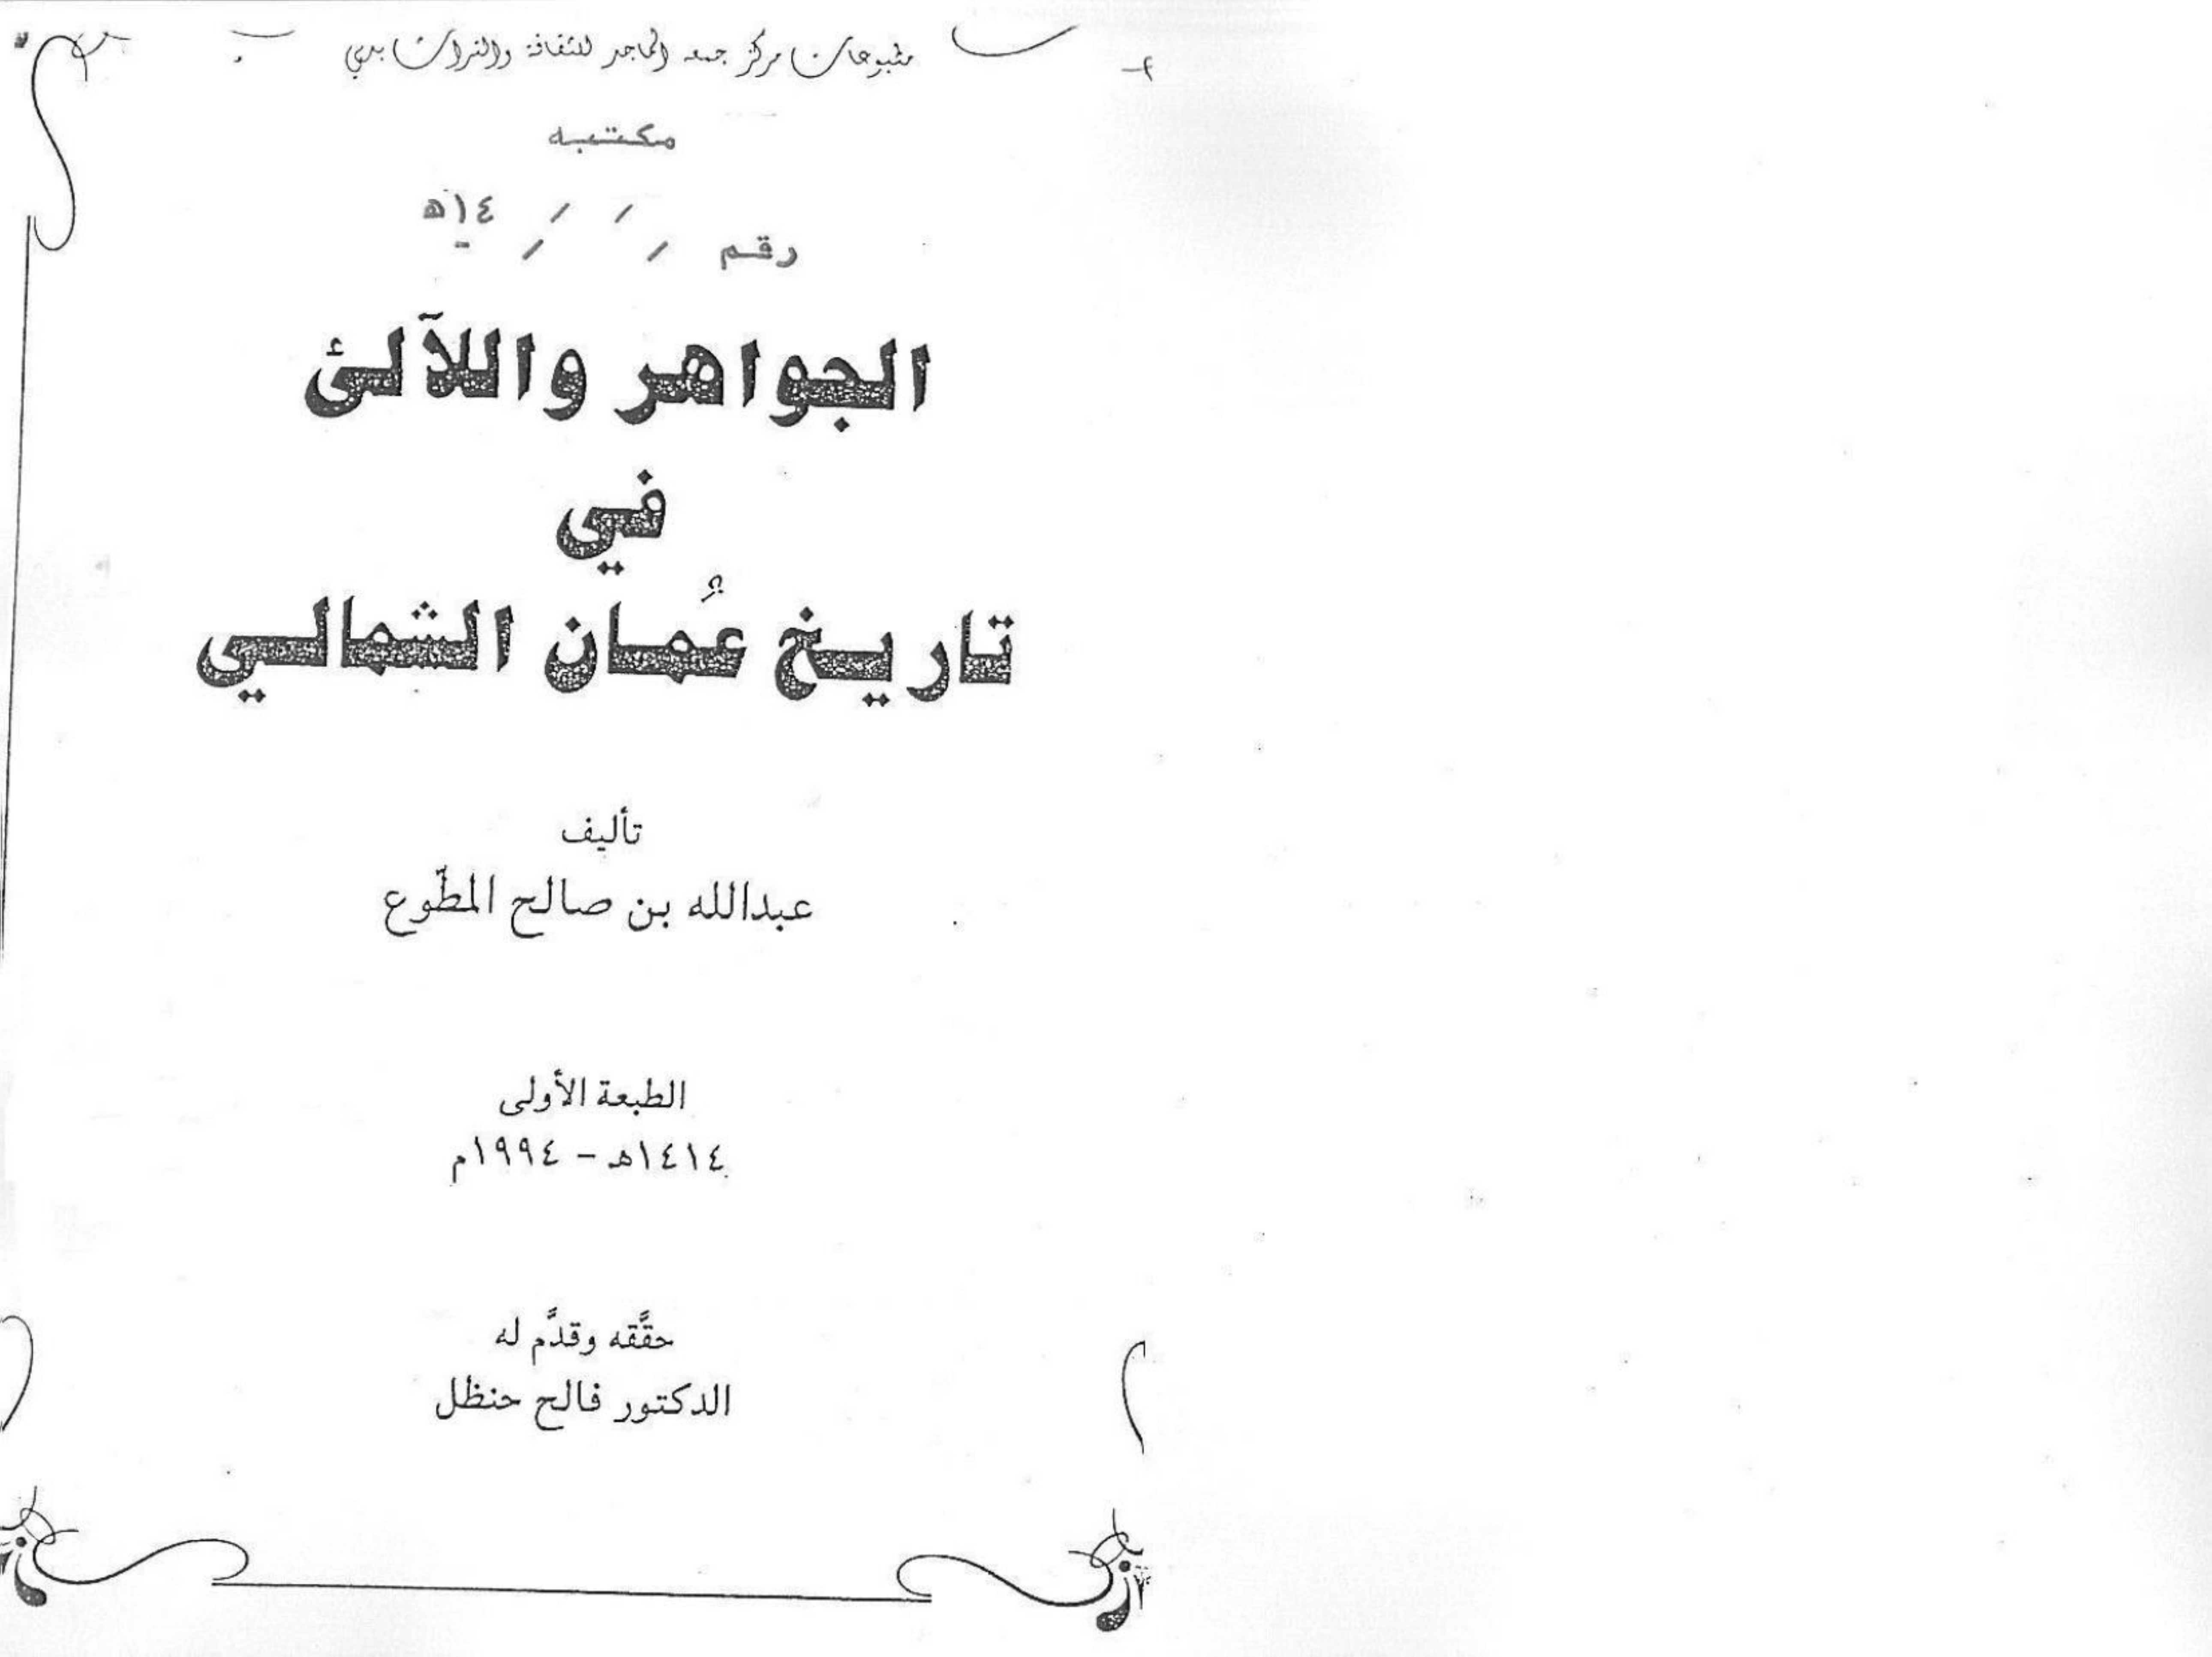 مطبوعات مركز جمعه الماجد للثقافة والتراث بدبي
مكتبه
١٤هـ / /
رقم / /
الجواهر واللآلئ
في
تاريخ عُمان الشمالي
تأليف
عبدالله بن صالح المطّوع
الطبعة الأولى
١٤١٤هـ - ١٩٩٤م
حقَّقه وقدَّم له
الدكتور فالح حنظل